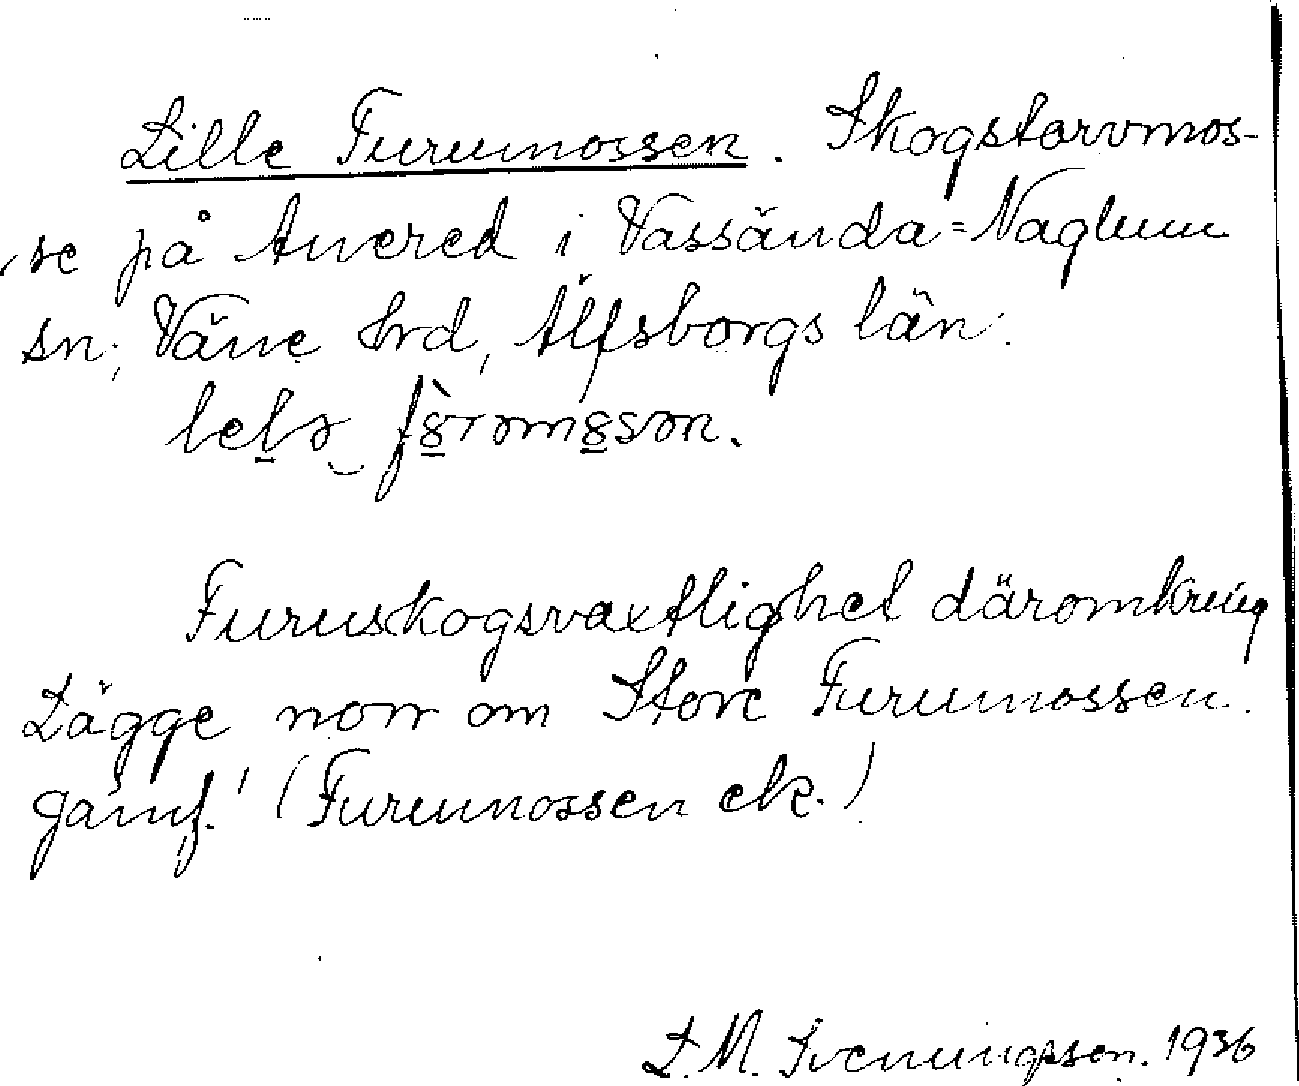 Lille Furumossen. Skogstorvmos-
se på Anered i Vassända=Naglum
sn; Väne hrd, Älfsborgs län.
Furuskogsvaxtlighet däromkring
Lägge norr om Store Furumossen.
Jämf. (Furumossen ek.)
L. M. Svenungsson. 1936